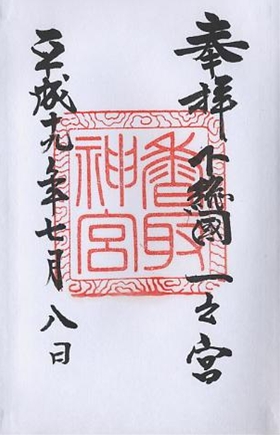 奉拝 下総國一之宮
香取神宮
平成十九年七月八日